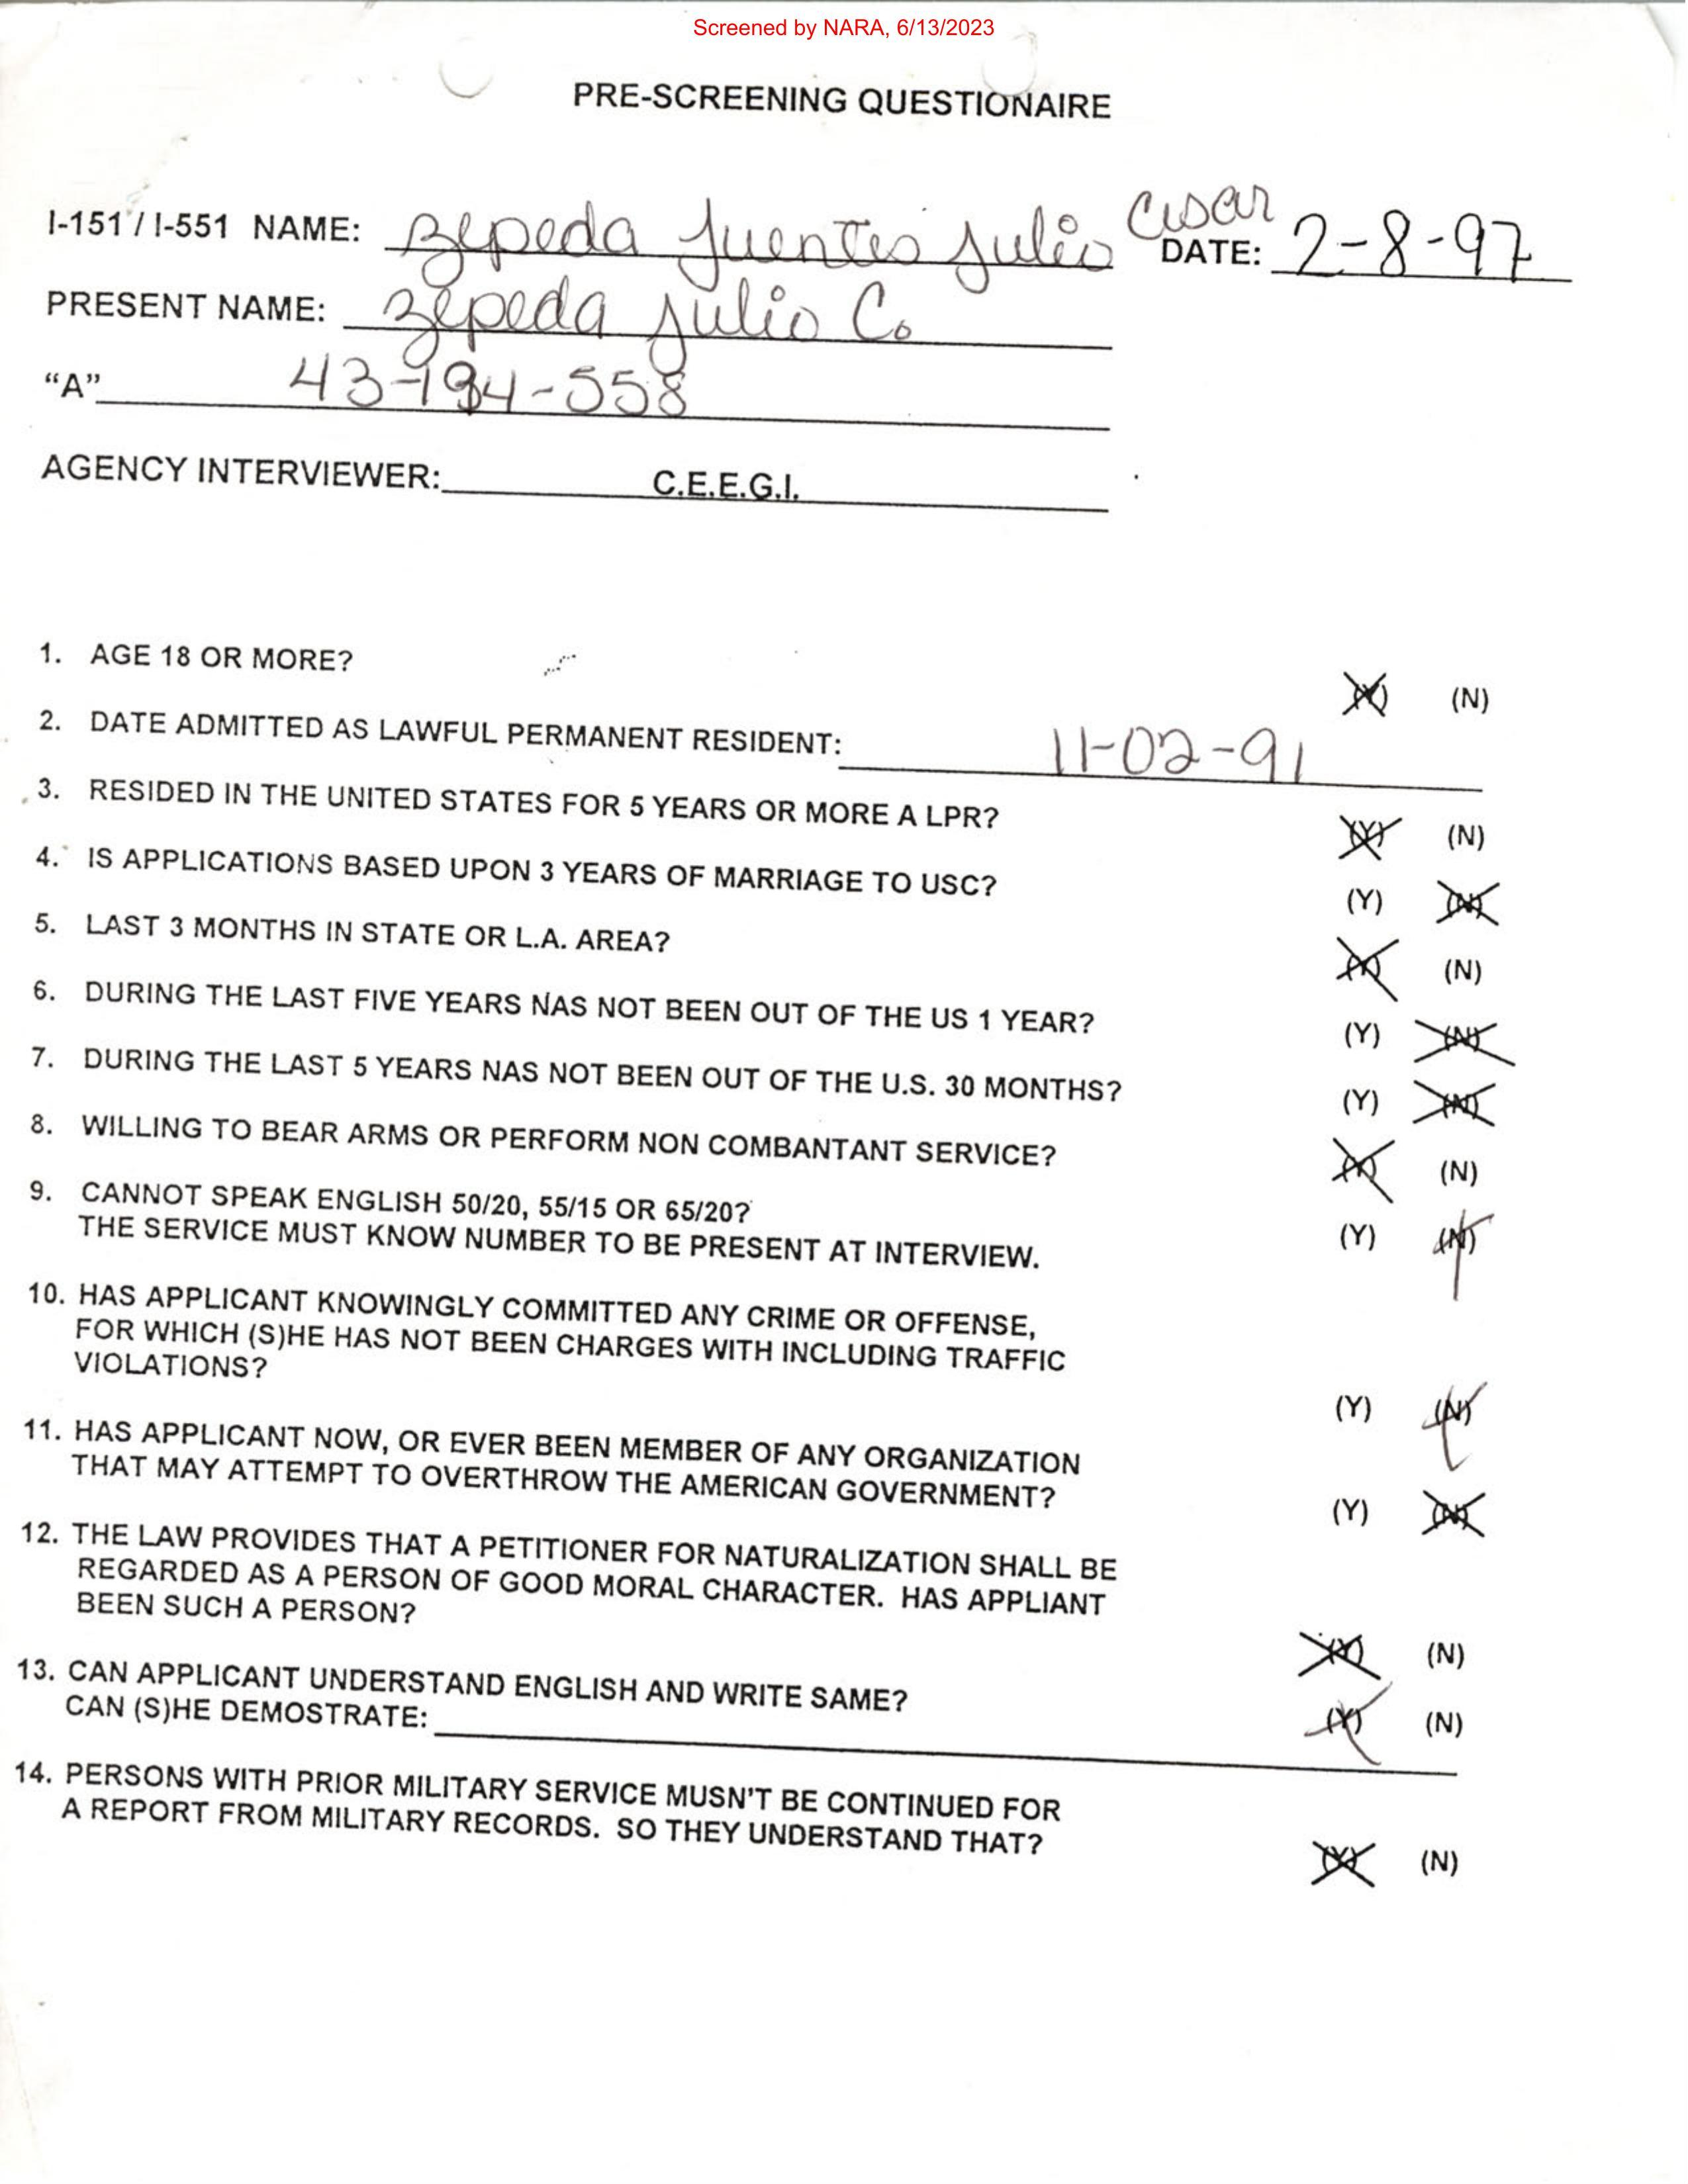 Screened by NARA, 6/13/2023
PRE-SCREENING QUESTIONAIRE
I-151 / I-551 NAME: Zepeda Fuentes Julio Cesar DATE: 2-8-97
PRESENT NAME: Zepeda Julio C.
“A” 43-194-558
AGENCY INTERVIEWER: C.E.E.G.I.
1. AGE 18 OR MORE? (Y) (N)
2. DATE ADMITTED AS LAWFUL PERMANENT RESIDENT: 11-02-91
3. RESIDED IN THE UNITED STATES FOR 5 YEARS OR MORE A LPR? (Y) (N)
4. IS APPLICATIONS BASED UPON 3 YEARS OF MARRIAGE TO USC? (Y) (N)
5. LAST 3 MONTHS IN STATE OR L.A. AREA? (Y) (N)
6. DURING THE LAST FIVE YEARS NAS NOT BEEN OUT OF THE US 1 YEAR? (Y) (N)
7. DURING THE LAST 5 YEARS NAS NOT BEEN OUT OF THE U.S. 30 MONTHS? (Y) (N)
8. WILLING TO BEAR ARMS OR PERFORM NON COMBANTANT SERVICE? (Y) (N)
9. CANNOT SPEAK ENGLISH 50/20, 55/15 OR 65/20?
THE SERVICE MUST KNOW NUMBER TO BE PRESENT AT INTERVIEW. (Y) (N)
10. HAS APPLICANT KNOWINGLY COMMITTED ANY CRIME OR OFFENSE,
FOR WHICH (S)HE HAS NOT BEEN CHARGES WITH INCLUDING TRAFFIC
VIOLATIONS? (Y) (N)
11. HAS APPLICANT NOW, OR EVER BEEN MEMBER OF ANY ORGANIZATION
THAT MAY ATTEMPT TO OVERTHROW THE AMERICAN GOVERNMENT? (Y) (N)
12. THE LAW PROVIDES THAT A PETITIONER FOR NATURALIZATION SHALL BE
REGARDED AS A PERSON OF GOOD MORAL CHARACTER. HAS APPLIANT
BEEN SUCH A PERSON? (Y) (N)
13. CAN APPLICANT UNDERSTAND ENGLISH AND WRITE SAME?
CAN (S)HE DEMOSTRATE: (Y) (N)
14. PERSONS WITH PRIOR MILITARY SERVICE MUSN'T BE CONTINUED FOR
A REPORT FROM MILITARY RECORDS. SO THEY UNDERSTAND THAT? (Y) (N)